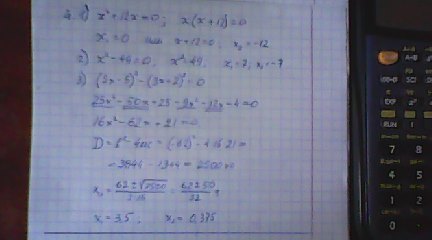 4. 1) x² + 12x = 0; x(x+12)=0
x₁ = 0 или x+12=0, x₂ = -12
2) x² - 49 = 0, x² = 49, x₁ = 7, x₂ = -7
3) (5x - 5)² - (3x + 2)² = 0
25x² - 50x + 25 - 9x² - 12x - 4 = 0
16x² - 62x + 21 = 0
D = b² - 4ac = (-62)² - 4·16·21 =
= 3844 - 1344 = 2500
= (62 ± √2500)/(2·16) = (62 ± 50)/32
x₁ = 3,5, x₂ = 0,375
A-B
7 8
4 5
1 2
0
RUN
EXP